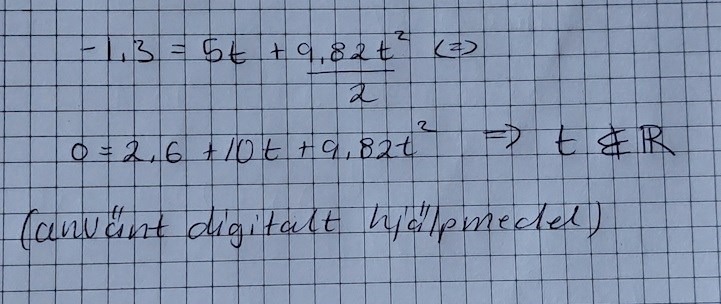 -1,3 = 5t + 9,82t²/2 <=>
0 = 2,6 + 10t + 9,82t² => t ∉ ℝ
(använt digitalt hjälpmedel)